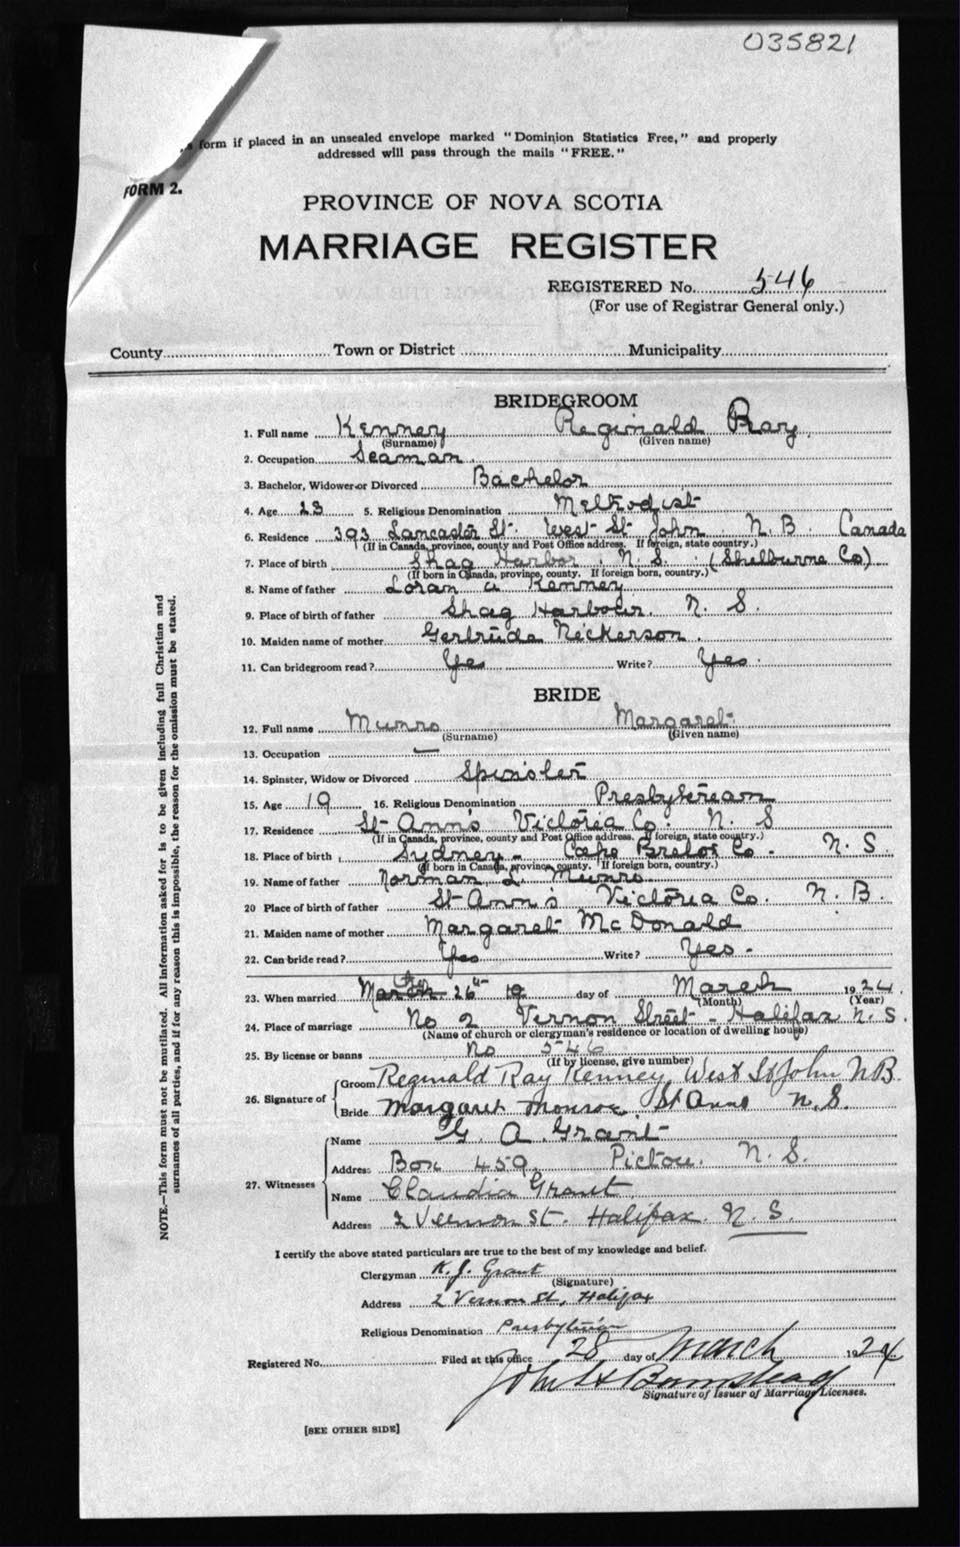 035821
form if placed in an unsealed envelope marked "Dominion Statistics Free," and properly
addressed will pass through the mails "FREE."
FORM 2.
PROVINCE OF NOVA SCOTIA
MARRIAGE REGISTER
REGISTERED No. 546
(For use of Registrar General only.)
County Town or District Municipality
BRIDEGROOM
1. Full name Kenney Reginald Ray
(Surname) (Given name)
2. Occupation Seaman
3. Bachelor, Widower or Divorced Bachelor
4. Age 23 5. Religious Denomination Methodist
6. Residence 393 Lancaster St. West St John N.B. Canada
(If in Canada, province, county and Post Office address. If foreign, state country.)
7. Place of birth Shag Harbor N.S. (Shelburne Co)
(If born in Canada, province, county. If foreign born, country.)
8. Name of father Loran a Kenney
9. Place of birth of father Shag Harbour. N. S.
10. Maiden name of mother Gertrude Nickerson.
11. Can bridegroom read? Yes Write? Yes.
BRIDE
12. Full name Munro Margaret
(Surname) (Given name)
13. Occupation —
14. Spinster, Widow or Divorced Spinster
15. Age 19 16. Religious Denomination Presbyterean
17. Residence St Ann's Victoria Co. N. S
(If in Canada, province, county and Post Office address. If foreign, state country.)
18. Place of birth Sydney - Cape Breton Co - N. S.
(If born in Canada, province, county. If foreign born, country.)
19. Name of father Norman L. Munro
20 Place of birth of father St Ann's Victoria Co. N.B.
21. Maiden name of mother Margaret McDonald
22. Can bride read? Yes Write? Yes -
23. When married 26th day of March 1924.
(Month) (Year)
24. Place of marriage No 2 Vernon Street - Halifax N.S.
(Name of church or clergyman's residence or location of dwelling house)
25. By license or banns No 546
(If by license, give number)
26. Signature of
Groom Reginald Ray Kenney West St John NB.
Bride Margaret Monroe. St Anns N.S.
27. Witnesses
Name G. A. Grant
Address Box 459. Pictou. N. S.
Name Claudia Grant
Address 2 Vernon St. Halifax. N.S.
I certify the above stated particulars are true to the best of my knowledge and belief.
Clergyman K. J. Grant
(Signature)
Address 2 Vernon St, Halifax
Religious Denomination Presbyterian
Registered No. Filed at this office 28 day of March 1924
John H Barnstead
Signature of Issuer of Marriage Licenses.
[SEE OTHER SIDE]
NOTE.—This form must not be mutilated. All information asked for is to be given including full Christian and
surnames of all parties, and if for any reason this is impossible, the reason for the omission must be stated.